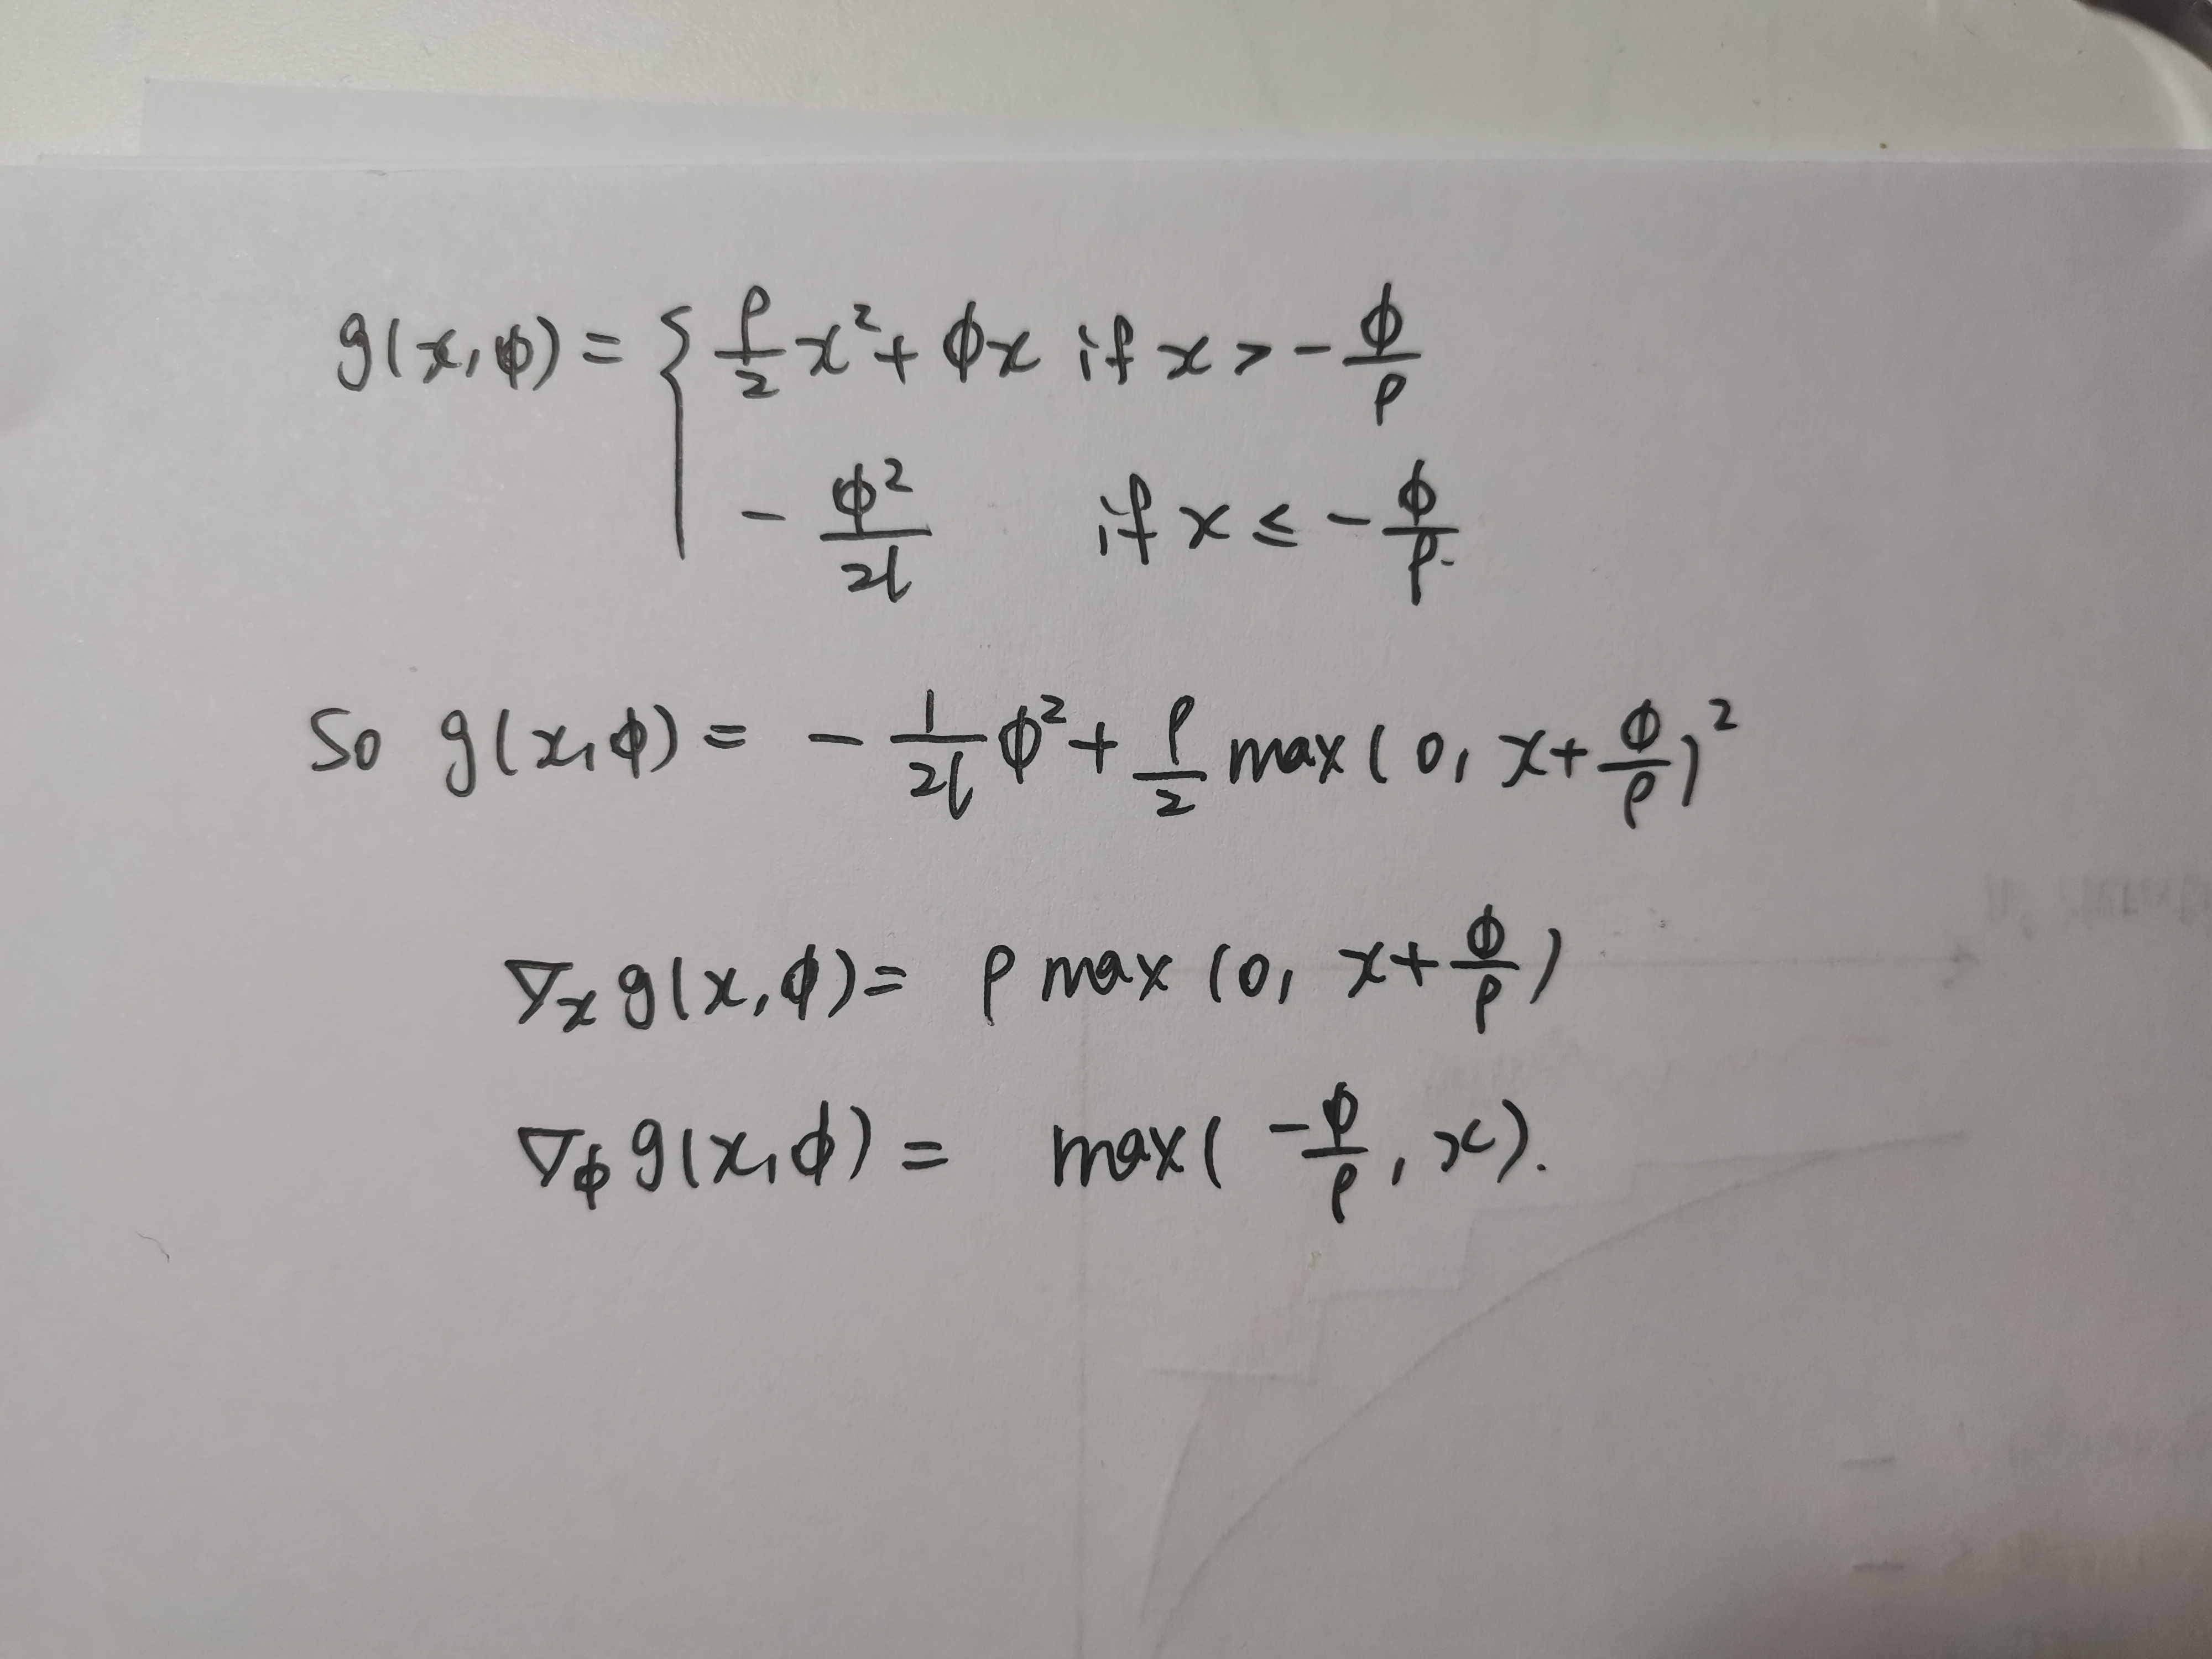 g(x,φ) = { ρ/2 x² + φx if x > -φ/ρ
-φ²/2l if x ≤ -φ/ρ.
So g(x,φ) = -1/2l φ² + ρ/2 max(0, x+φ/ρ)²
∇ₓ g(x,φ) = ρ max(0, x+φ/ρ)
∇φ g(x,φ) = max(-φ/ρ, x).